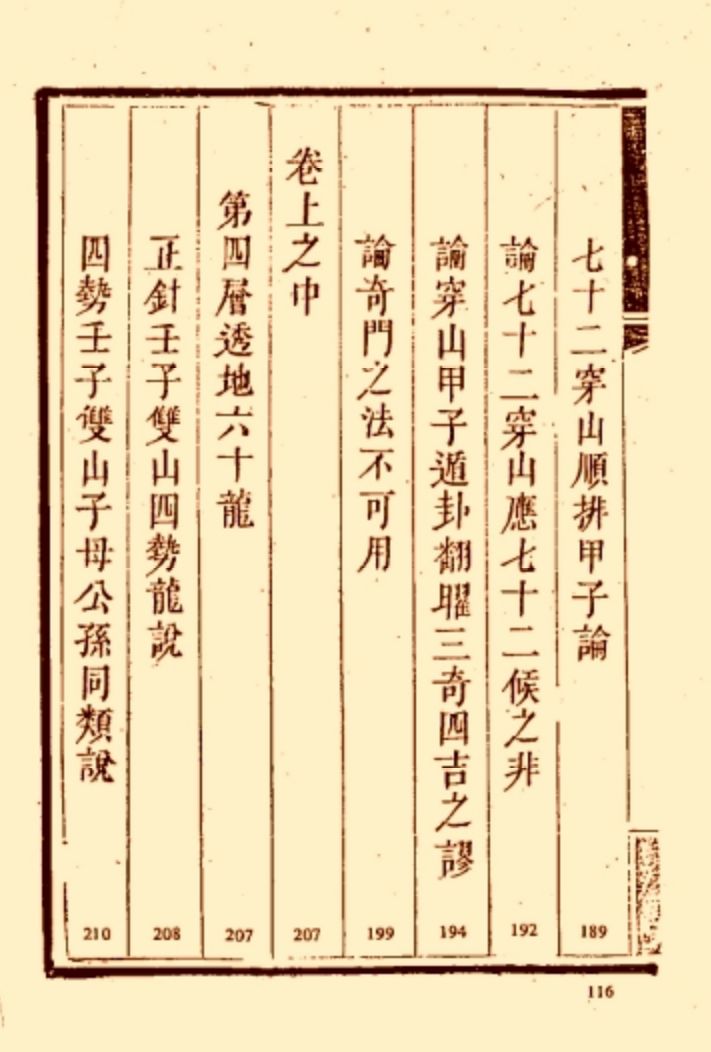 七十二穿山順排甲子論 189
論七十二穿山應七十二候之非 192
論穿山甲子遁卦翻曜三奇四吉之謬 194
論奇門之法不可用 199
卷上之中 207
第四層透地六十龍 207
正針壬子雙山四勢龍說 208
四勢壬子雙山子母公孫同類說 210
116